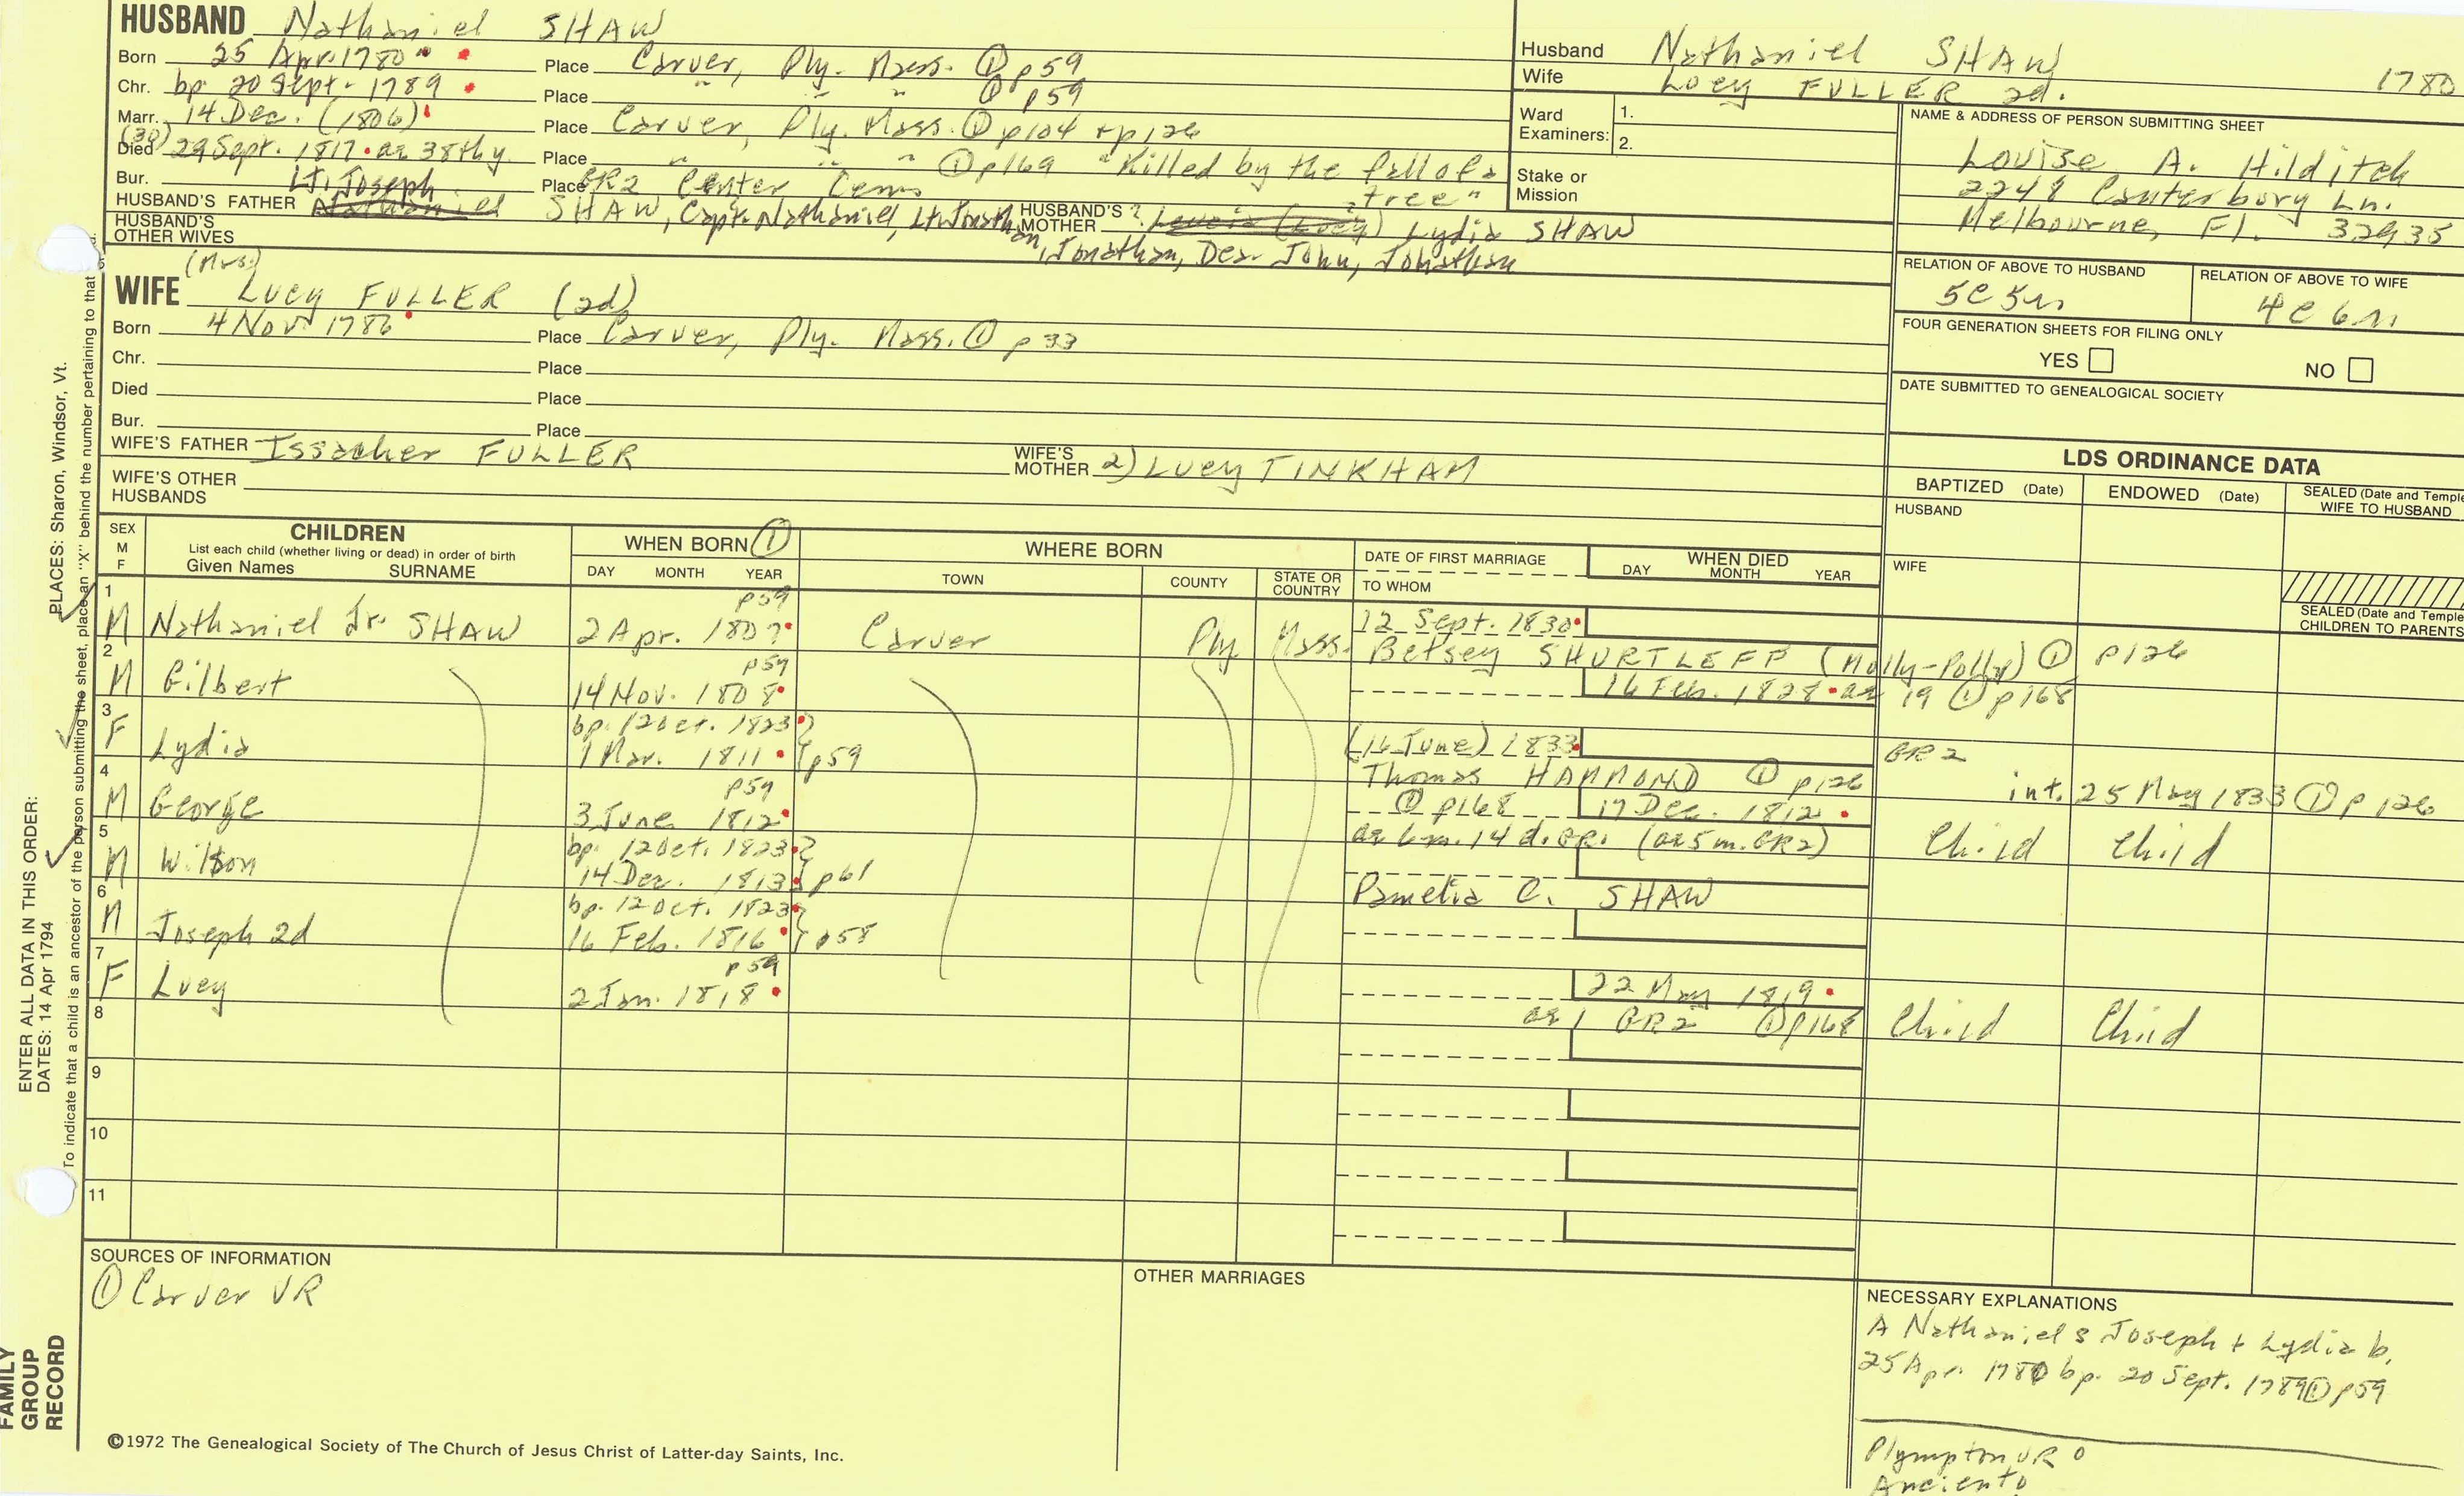 HUSBAND Nathaniel SHAW
Born 25 Apr. 1780 Place Carver, Ply. Mass. ① p59
Chr. bp. 20 Sept. 1789 Place " " " ① p59
Marr. 14 Dec. (1806) Place Carver, Ply. Mass. ① p104 + p126
(30)
Died 29 Sept. 1817 ae 38thy. Place " " " ① p169 "Killed by the fall of a
tree"
Bur. Place GR2 Center Cem
Lt. Joseph
HUSBAND'S FATHER Nathaniel SHAW, Capt. Nathaniel, Lt. Jonathan, Jonathan, Dea. John, Jonathan
HUSBAND'S MOTHER ? (Lucy) Lydia SHAW
HUSBAND'S
OTHER WIVES
(Mrs.)
WIFE Lucy FULLER (2d)
Born 4 Nov 1786 Place Carver, Ply. Mass. ① p33
Chr. Place
Died Place
Bur. Place
WIFE'S FATHER Issacher FULLER
WIFE'S MOTHER 2) Lucy TINKHAM
WIFE'S OTHER
HUSBANDS
Husband Nathaniel SHAW 1780
Wife Lucy FULLER 2d.
Ward 1.
Examiners: 2.
Stake or
Mission
NAME & ADDRESS OF PERSON SUBMITTING SHEET
Louise A. Hilditch
2248 Canterbury Ln.
Melbourne, Fl. 32935
RELATION OF ABOVE TO HUSBAND
5C5R
RELATION OF ABOVE TO WIFE
4C6R
FOUR GENERATION SHEETS FOR FILING ONLY
YES NO
DATE SUBMITTED TO GENEALOGICAL SOCIETY
LDS ORDINANCE DATA
BAPTIZED (Date) ENDOWED (Date) SEALED (Date and Temple
WIFE TO HUSBAND
HUSBAND
WIFE
SEALED (Date and Temple
CHILDREN TO PARENTS
SEX
M
F
CHILDREN
List each child (whether living or dead) in order of birth
Given Names SURNAME
WHEN BORN ①
DAY MONTH YEAR
WHERE BORN
TOWN COUNTY STATE OR COUNTRY
DATE OF FIRST MARRIAGE
TO WHOM
WHEN DIED
DAY MONTH YEAR
1 p59
M Nathaniel Jr. SHAW 2 Apr. 1807 Carver Ply Mass. 12 Sept. 1830
Betsey SHURTLEFF (Molly-Polly) ① p126
2 p59
M Gilbert 14 Nov. 1808 16 Feb. 1828 ae 19 ① p168
3 bp. 12 Oct. 1823
F Lydia 1 Mar. 1811 p59 (16 June) 1833 GR2
Thomas HAMMOND ① p126 int. 25 May 1833 ① p126
4 p59
M George 3 June 1812 ① p168 17 Dec. 1812
ae 6m. 14 d. GR1 (ae 5 m. GR2) Child Child
5 bp. 12 Oct. 1823
M Wilson 14 Dec. 1813 p61
Pamelia C. SHAW
6 bp. 12 Oct. 1823
M Joseph 2d 16 Feb. 1816 p58
7 p59
F Lucy 2 Jan. 1818 22 May 1819
ae 1 GR2 ① p168 Child Child
8
9
10
11
SOURCES OF INFORMATION
① Carver VR
OTHER MARRIAGES
NECESSARY EXPLANATIONS
A Nathaniel s Joseph + Lydia b.
25 Apr. 1780 bp. 20 Sept. 1789 ① p59
Plympton VR 0
©1972 The Genealogical Society of The Church of Jesus Christ of Latter-day Saints, Inc.
ENTER ALL DATA IN THIS ORDER:
DATES: 14 Apr 1794
PLACES: Sharon, Windsor, Vt.
To indicate that a child is an ancestor of the person submitting the sheet, place an "X" behind the number pertaining to that
FAMILY
GROUP
RECORD